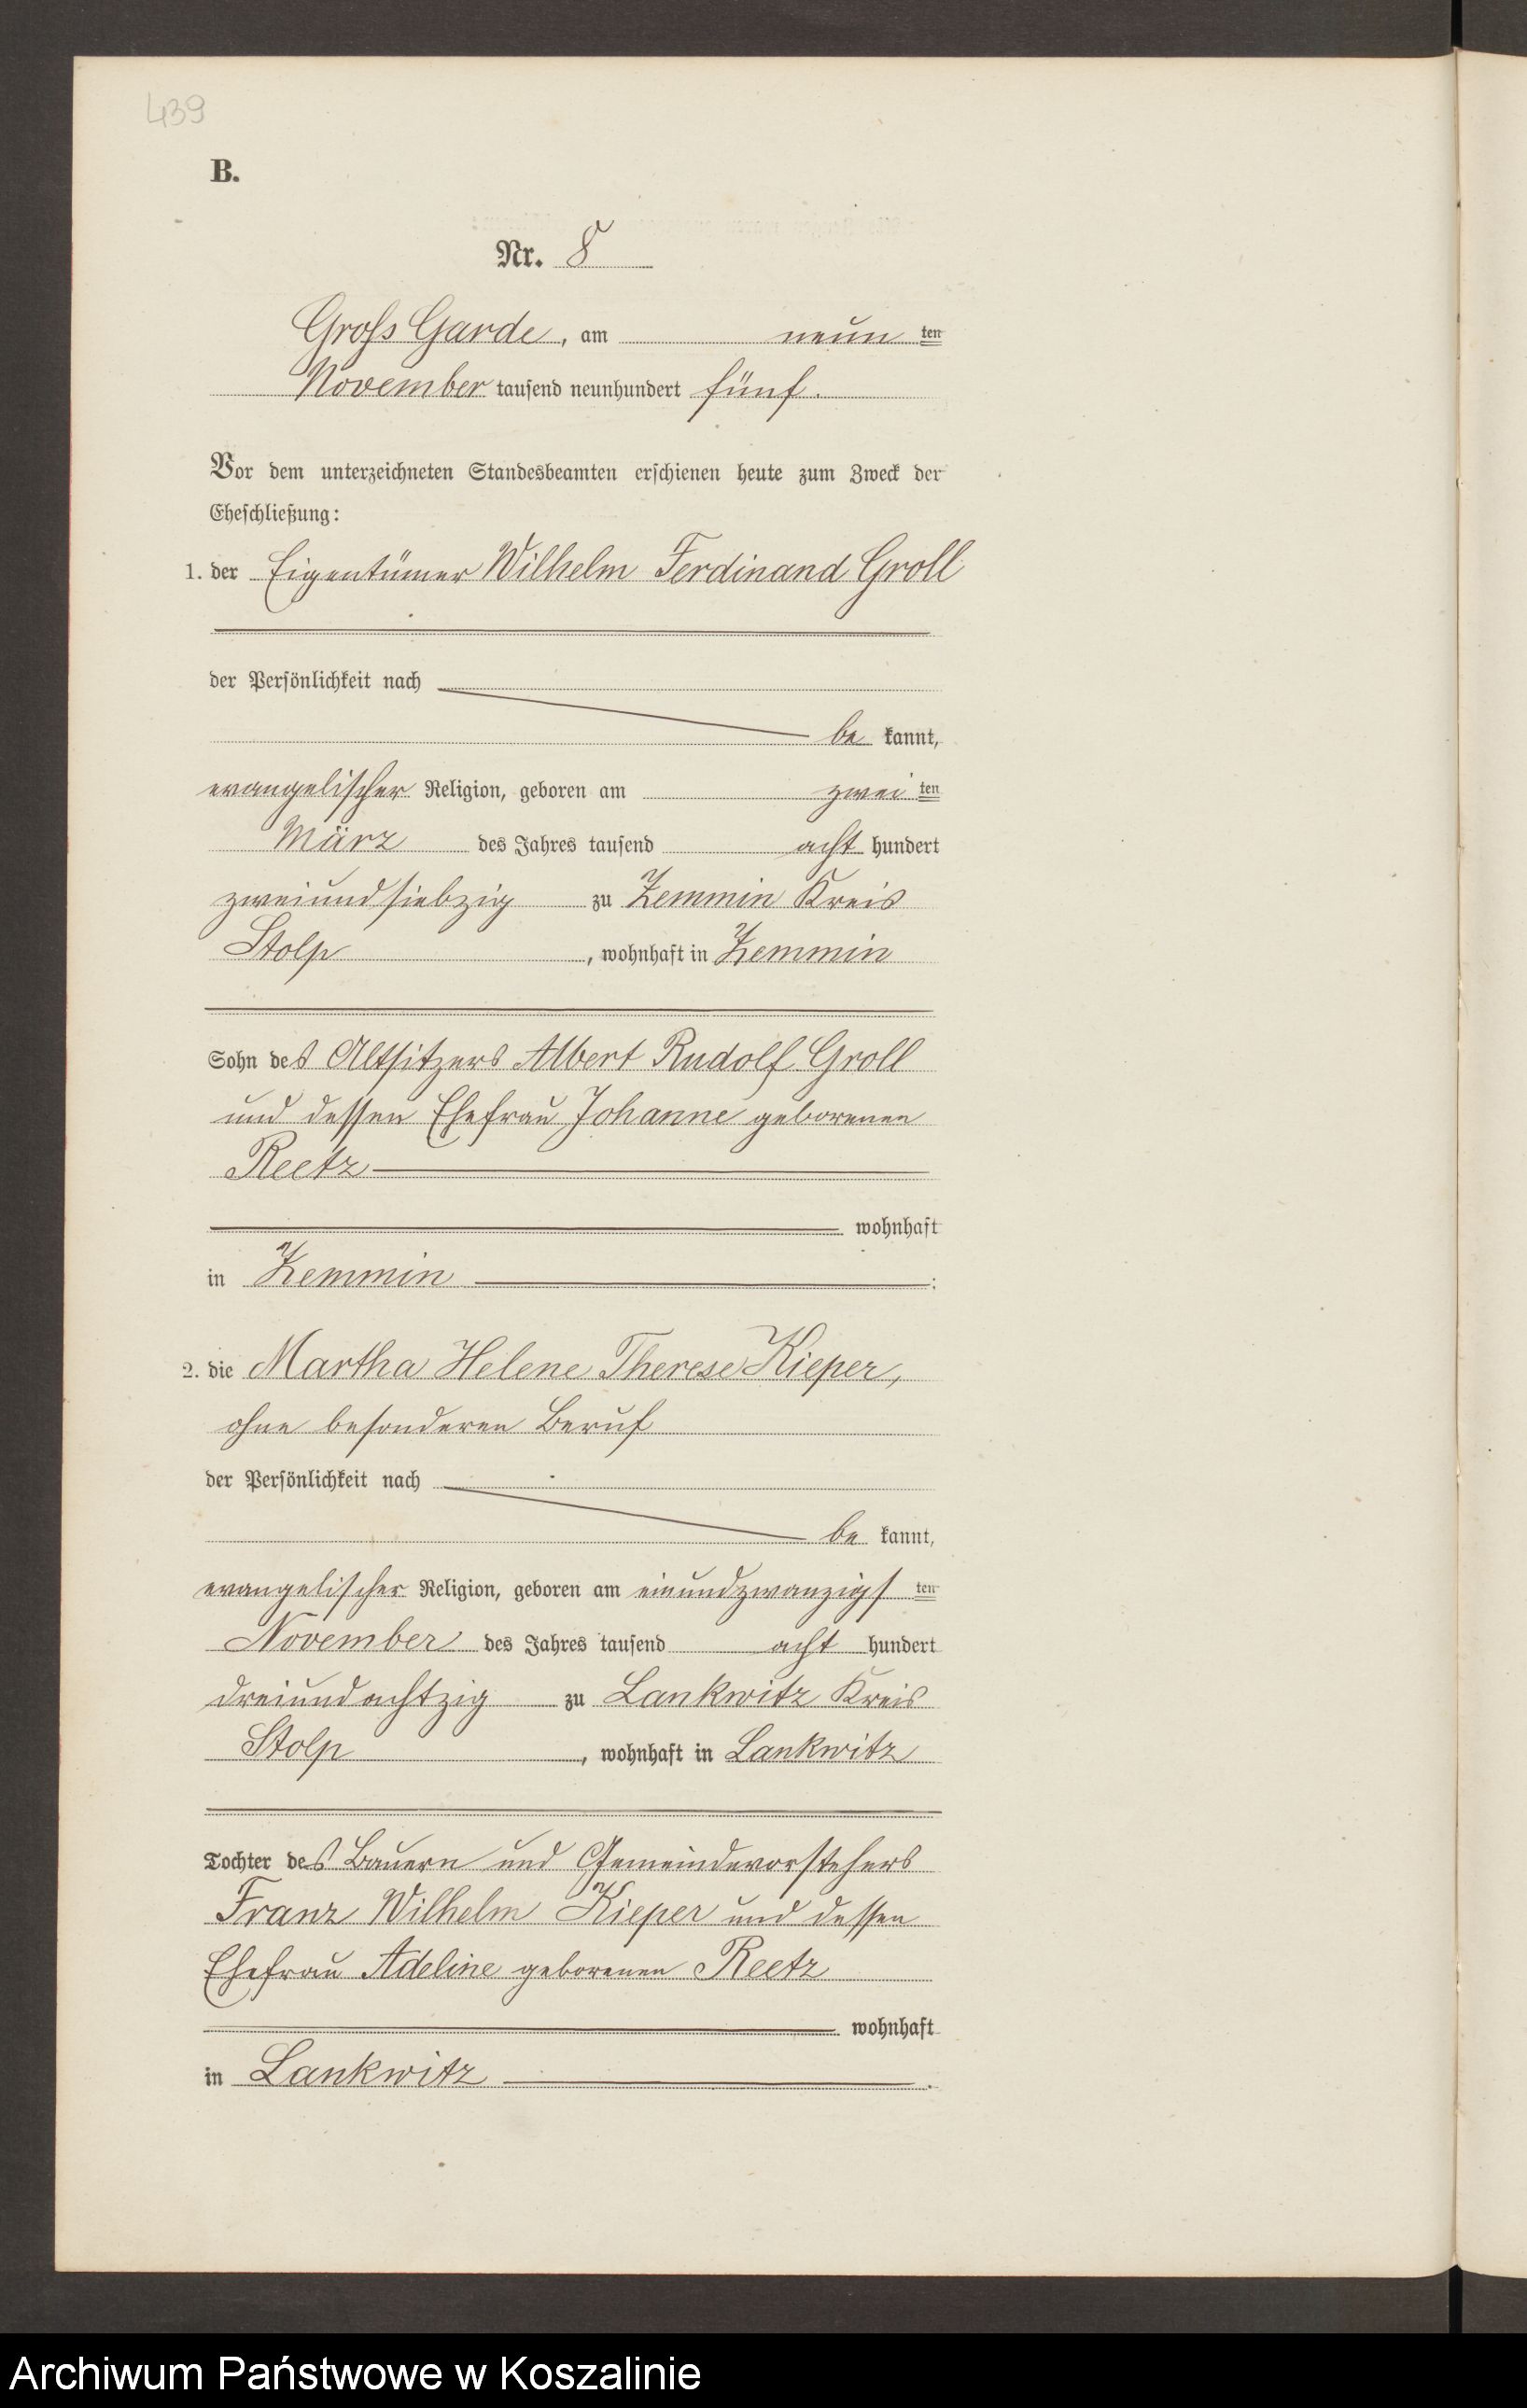 439
B.
Nr. 8
Gross Garde, am neun ten
November tausend neunhundert fünf.
Vor dem unterzeichneten Standesbeamten erschienen heute zum Zweck der
Eheschließung:
1. der Eigentümer Wilhelm Ferdinand Groll
der Persönlichkeit nach
be kannt,
evangelischer Religion, geboren am zwei ten
März des Jahres tausend acht hundert
zweiundsiebzig zu Zemmin Kreis
Stolp, wohnhaft in Zemmin
Sohn des Altsitzers Albert Rudolf Groll
und dessen Ehefrau Johanne geborenen
Reetz
wohnhaft
in Zemmin;
2. die Martha Helene Therese Kieper,
ohne besonderen Beruf
der Persönlichkeit nach
be kannt,
evangelischer Religion, geboren am einundzwanzigs ten
November des Jahres tausend acht hundert
dreiundachtzig zu Lankwitz Kreis
Stolp, wohnhaft in Lankwitz
Tochter des Bauern und Gemeindevorstehers
Franz Wilhelm Kieper und dessen
Ehefrau Adeline geborenen Reetz
wohnhaft
in Lankwitz.
Archiwum Państwowe w Koszalinie